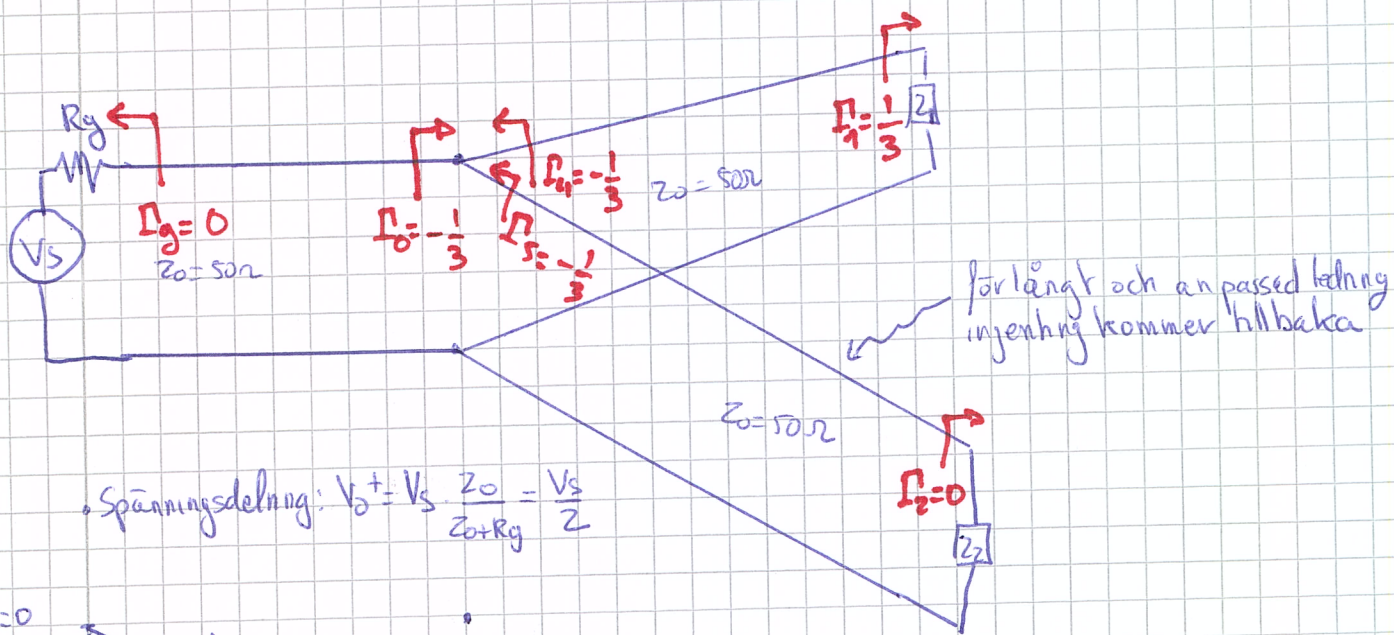 Rg
Vs
Γg = 0
Z0 = 50Ω
Γ0 = -1/3
Γ4 = -1/3
Γ5 = -1/3
Z0 = 50Ω
Γ1 = 1/3
Z1
för långt och anpassed ledning
ingenting kommer tillbaka
Z0 = 50Ω
Γ2 = 0
Z2
• Spänningsdelning: V0+ = Vs · Z0/(Z0+Rg) = Vs/2
=0